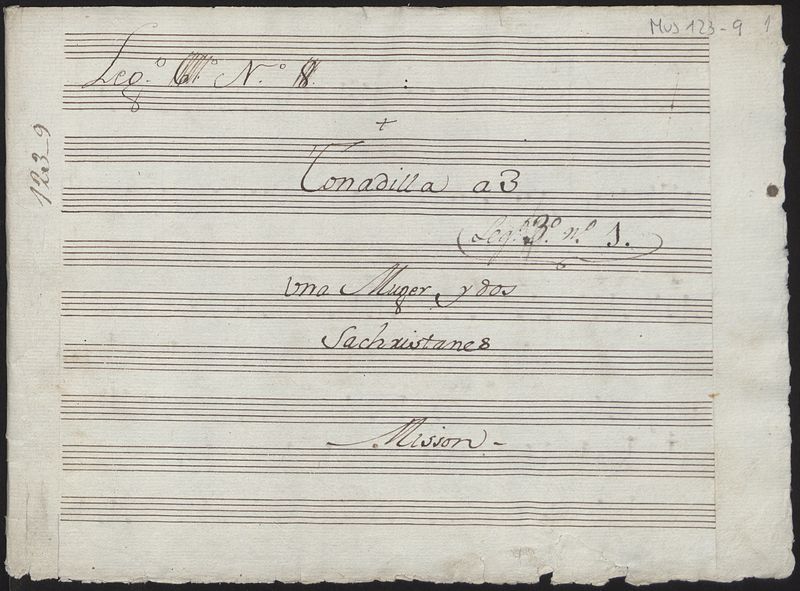 Mus 123-9 1
Leg.º N.º
+
Tonadilla a 3
Leg.º 3.º n.º 1.
Una Muger, y dos
Sachristanes
- Misson -
123-9